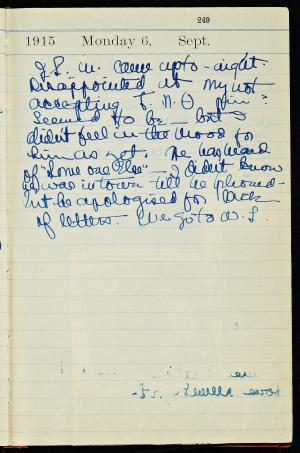 249
1915 Monday 6, Sept.
J. S. W. came up to-night.
Disappointed at my not
accepting F. N. O pin
Seemed to be — but I
didn't feel in the mood for
him as yet. He has heard
of "Some one Else" — I didn't know
he was in town till he phoned —
but he apologised for lack
of letters. We go to